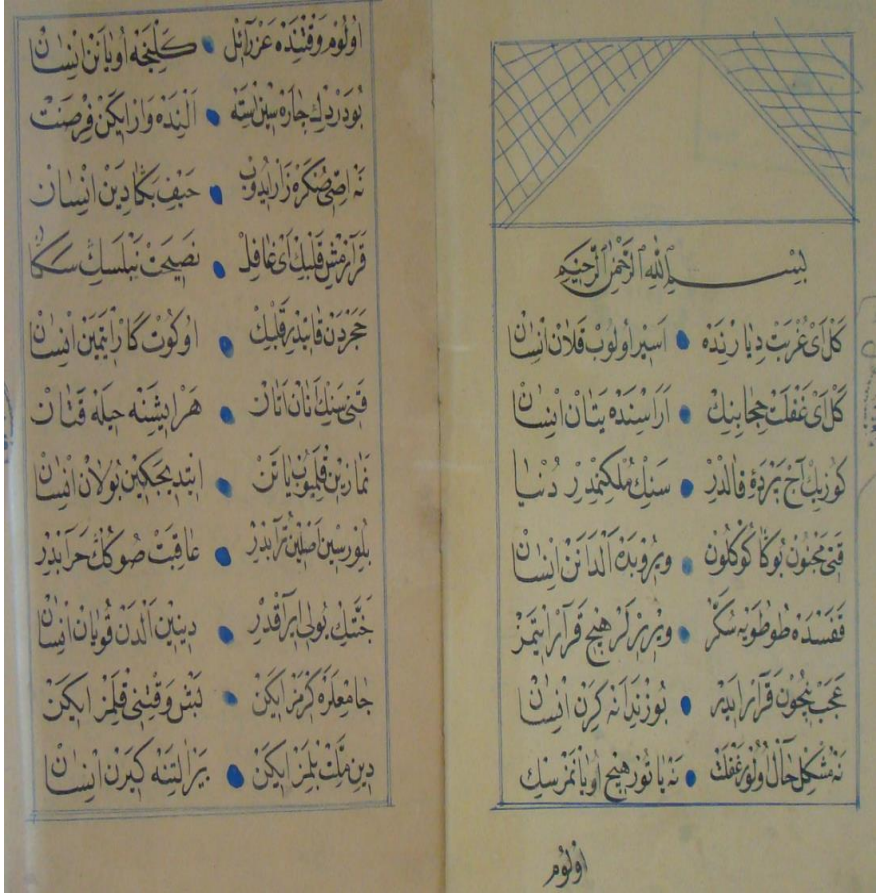 بسم الله الرحمن الرحيم
كل اى غربت ديارنده • اسير اولوب قلان انسان
كل اى غفلت حجابنك • اراسنده يتان انسان
كوزيك آچ پرده قالدر • سنك ملكمدر دنيا
قنى مجنون بوكا كوكلون • ويروبده الدانن انسان
قفسنده طوطويه شكر • ويررلر هيچ قرار ايتمز
عجب نيچون قرار ايدر • بو زندانه كرن انسان
نه مشكل حال اولور غفلت • نه ياتور هيچ اويانمزسك
اولوم
اولوم وقتنده عزرائل • كلنجه اويانن انسان
بو دردك چاره سين استه • النده وار ايكن فرصت
نه اصى صكره زار ايدوب • حيف بكا دين انسان
قرارمش قلبك اى غافل • نصيحت نيلسك سكا
حجردن قاتيدر قلبك • اوكوت كار ايتمين انسان
قنى سنك انان اتان • هر ايشنه حيله قتان
نمازين قلميوب ياتن • ايتديجكين بولان انسان
بلورسين اصلين ترابدر • عاقبت صوكك خرابدر
جنتك يولى ايراقدر • دينين الدن قويان انسان
جامعلره كرمز ايكن • بش وقتنى قلمز ايكن
دين ملت بلمز ايكن • ير التنه كيرن انسان